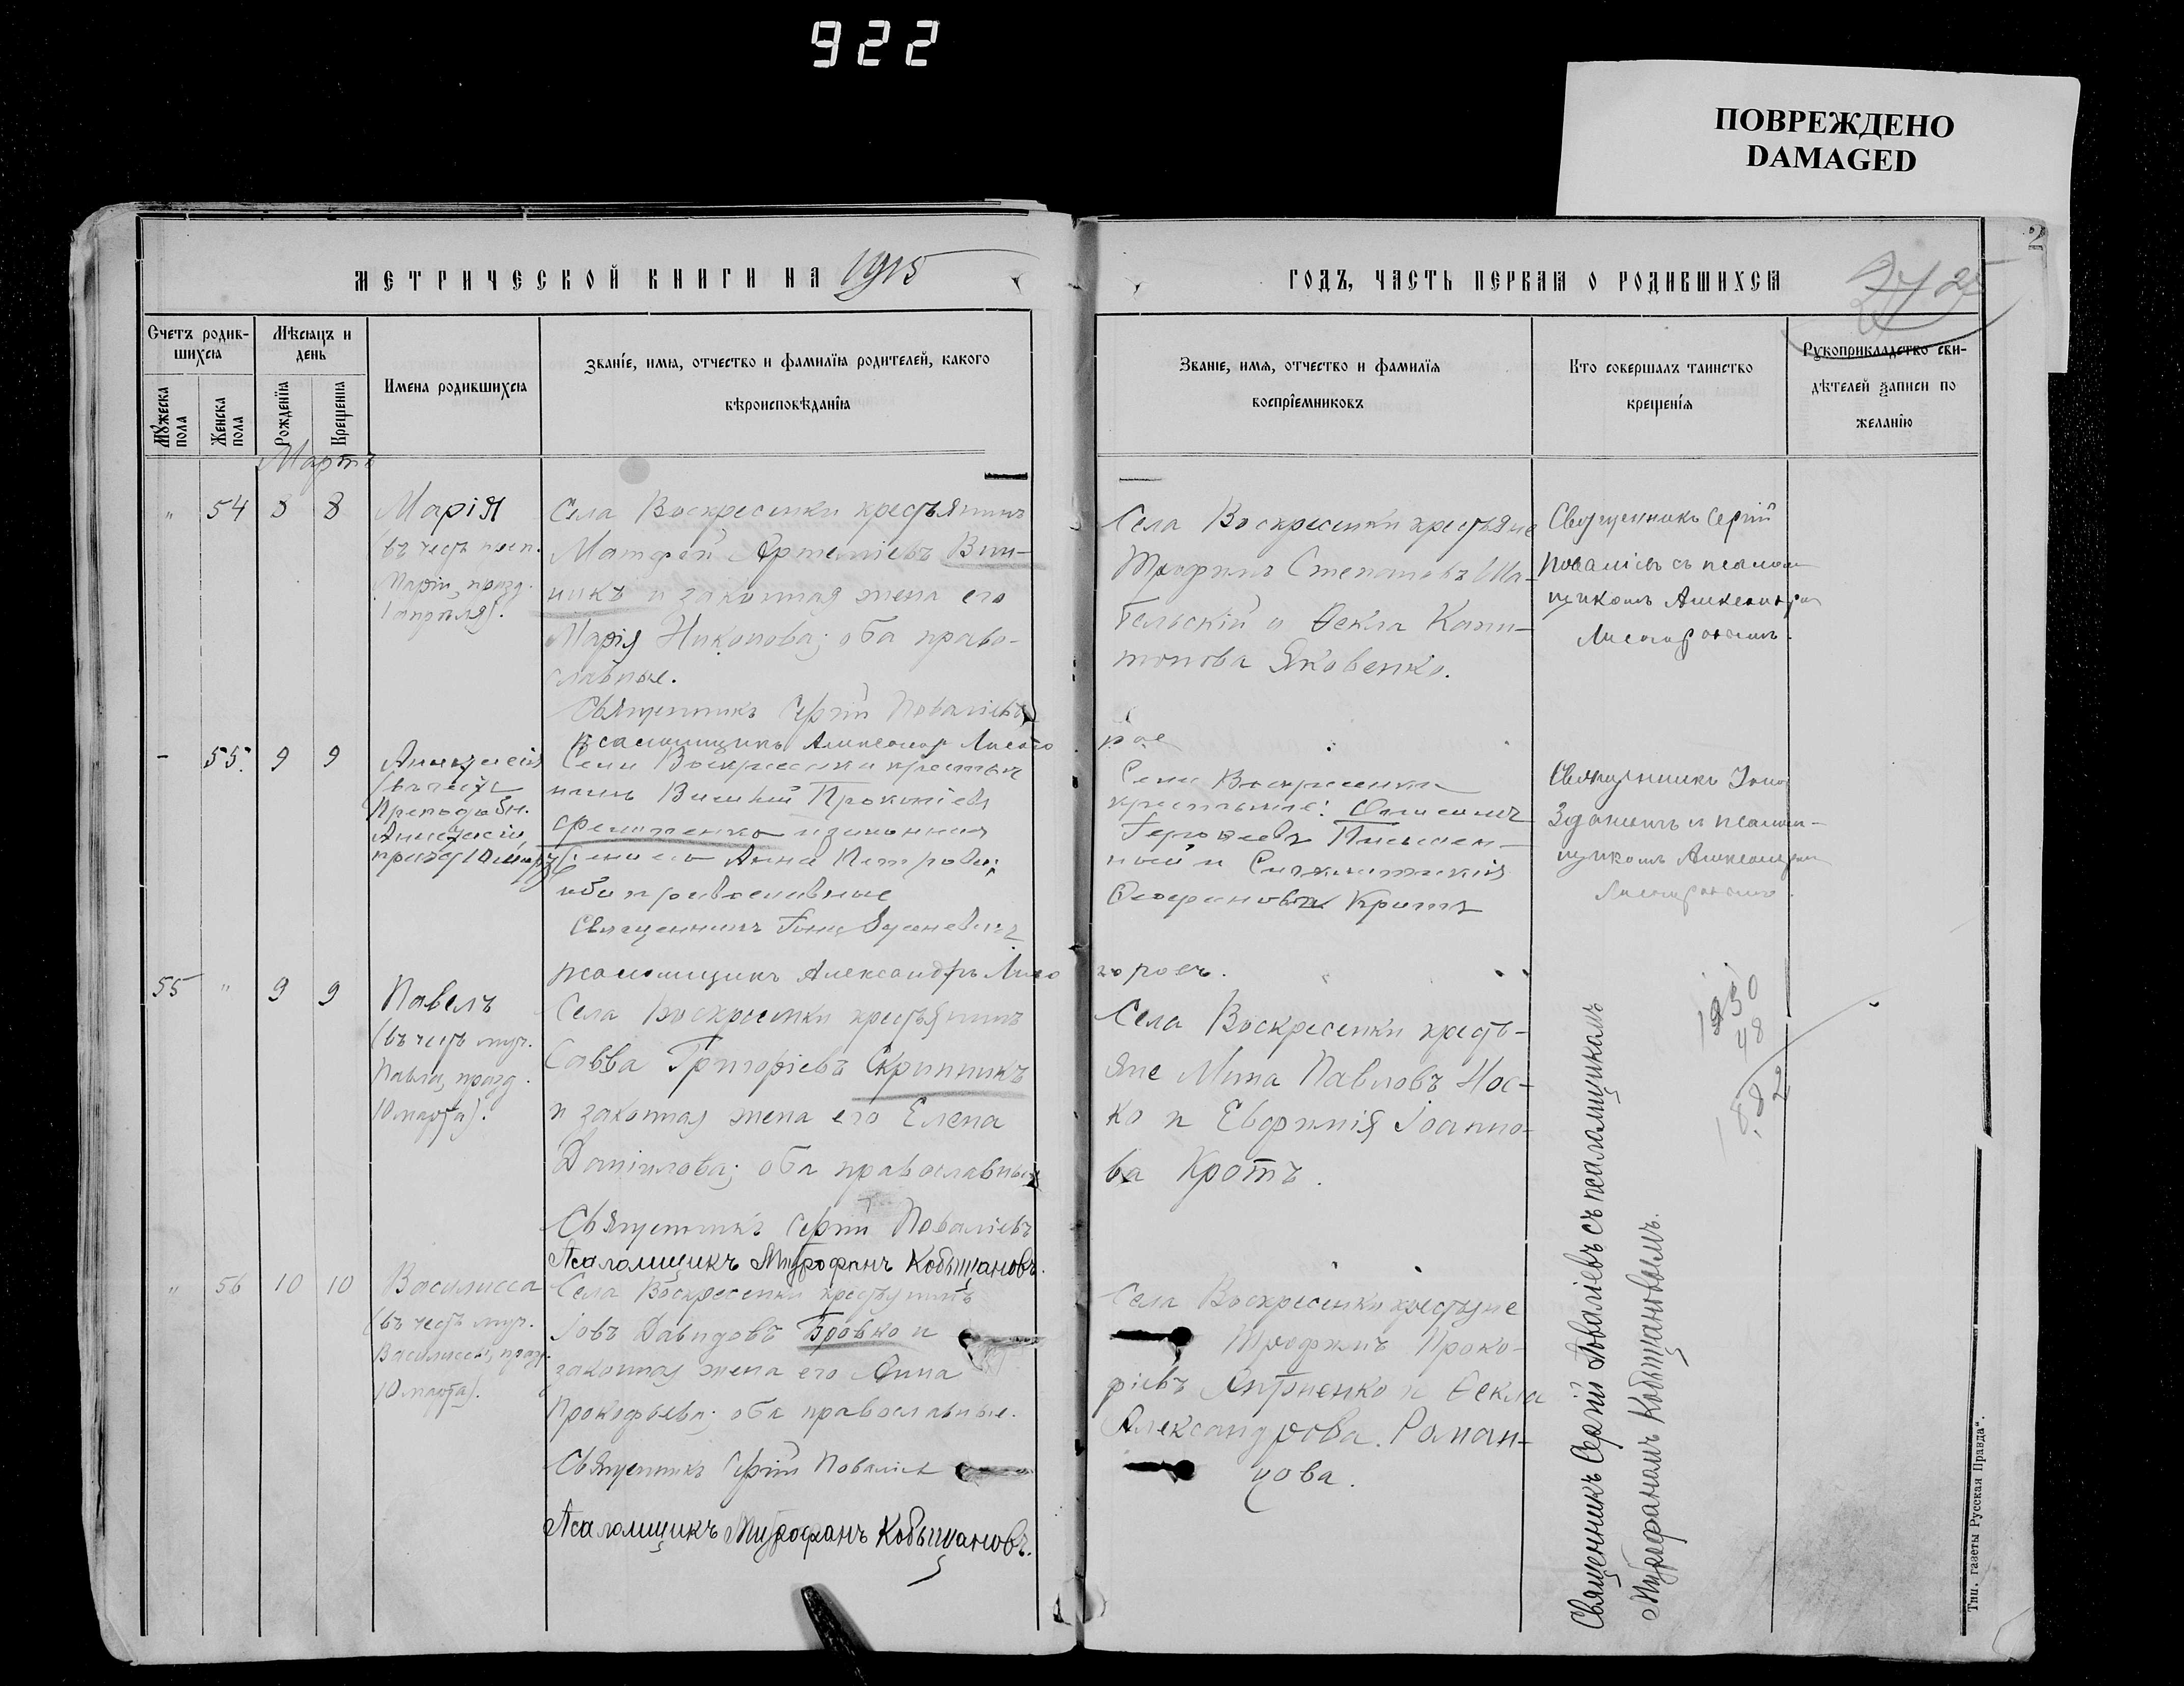 922
ПОВРЕЖДЕНО
DAMAGED
2
МЕТРИЧЕСКОЙ КНИГИ НА 1915
ГОДЪ, ЧАСТЬ ПЕРВАЯ О РОДИВШИХСЯ
25
Счетъ родив-
шихся
Мѣсяцъ и
день
Мужеска пола
Женска пола
Рожденїя
Крещенїя
Имена родившихся
Званїе, имя, отчество и фамилїя родителей, какого
вѣроисповѣданїя
Званїе, имя, отчество и фамилїя
воспрїемниковъ
Кто совершалъ таинство
крещенїя
Рукоприкладство сви-
дѣтелей записи по
желанїю
Мартъ
" 54 8 8
Марія
(въ честь преп.
Маріи, празд.
1 апрѣля).
Села Воскресенки крестьянинъ
Матфей Артеміевъ Вин-
никъ и законная жена его
Марія Никонова; оба право-
славные.
Священникъ Сергій Поваліевъ
псаломщикъ Александр Лисого
рос
Села Воскресенки крестьяне
Трофимъ Степановъ Ша-
тельскій и Ѳекла Капи-
тонова Яковенко.
Священникъ Сергій
Поваліевъ съ псалом
щикомъ Александром
Лисогоромъ.
- 55. 9 9
Анастасія
(въ честь
Преподобн.
Анастасіи,
празд 10 марта)
Села Воскресенки крестья
нинъ Василій Прокопіевъ
и законная
жена его Анна Петрова;
оба православные
Священникъ
псаломщикъ Александръ Лисо
горовъ.
Села Воскресенки
крестьяне:
Письмен-
ной и Синклитикія
Феофанова Кротъ
Священникъ
и псалом-
щикомъ Александром
55 " 9 9
Павелъ
(въ честь муч.
Павла, празд.
10 марта).
Села Воскресенки крестьянинъ
Савва Григоріевъ Скрипникъ
и законная жена его Елена
Даніилова; оба православные
Священникъ Сергій Поваліевъ
Псаломщикъ Митрофанъ Кобыщановъ.
Села Воскресенки кресть-
яне Мина Павловъ Нос-
ко и Евфимія Іоанно-
ва Кротъ.
1930
48
1882
" 56 10 10
Василисса
(въ честь муч.
Василиссы, празд.
10 марта).
Села Воскресенки крестьянинъ
Іовъ Давидовъ Бровко и
законная жена его Анна
Прокофьева; оба православные.
Священникъ Сергій Поваліев
Псаломщикъ Митрофанъ Кобыщановъ.
Села Воскресенки крестьяне
Трофимъ Проко-
фіевъ и Ѳекла
Александрова Роман-
цова.
Священникъ Сергій Поваліевъ съ псаломщикомъ
Митрофаномъ Кобыщановымъ.
Тип. газеты „Русская Правда“.